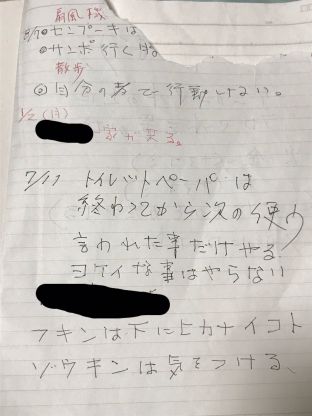 扇風機
8/1 ◎センプーキは
◎サンポ行く時
散歩
◎自分の考で行動しない。
1/2 (月)
家が来る。
7/11 トイレットペーパは
終わってから次の使う
言われた事だけやる
ヨケイな事はやらない
フキンは下にヒカナイコト
ゾウキンは気をつける、